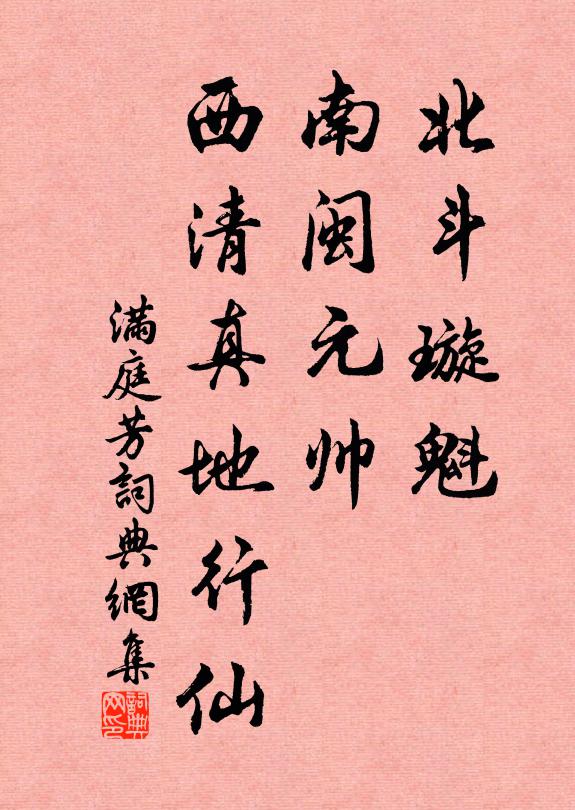 北斗璇魁
南闽元帅
西清真地行仙
满庭芳詞典網集
詞典网印